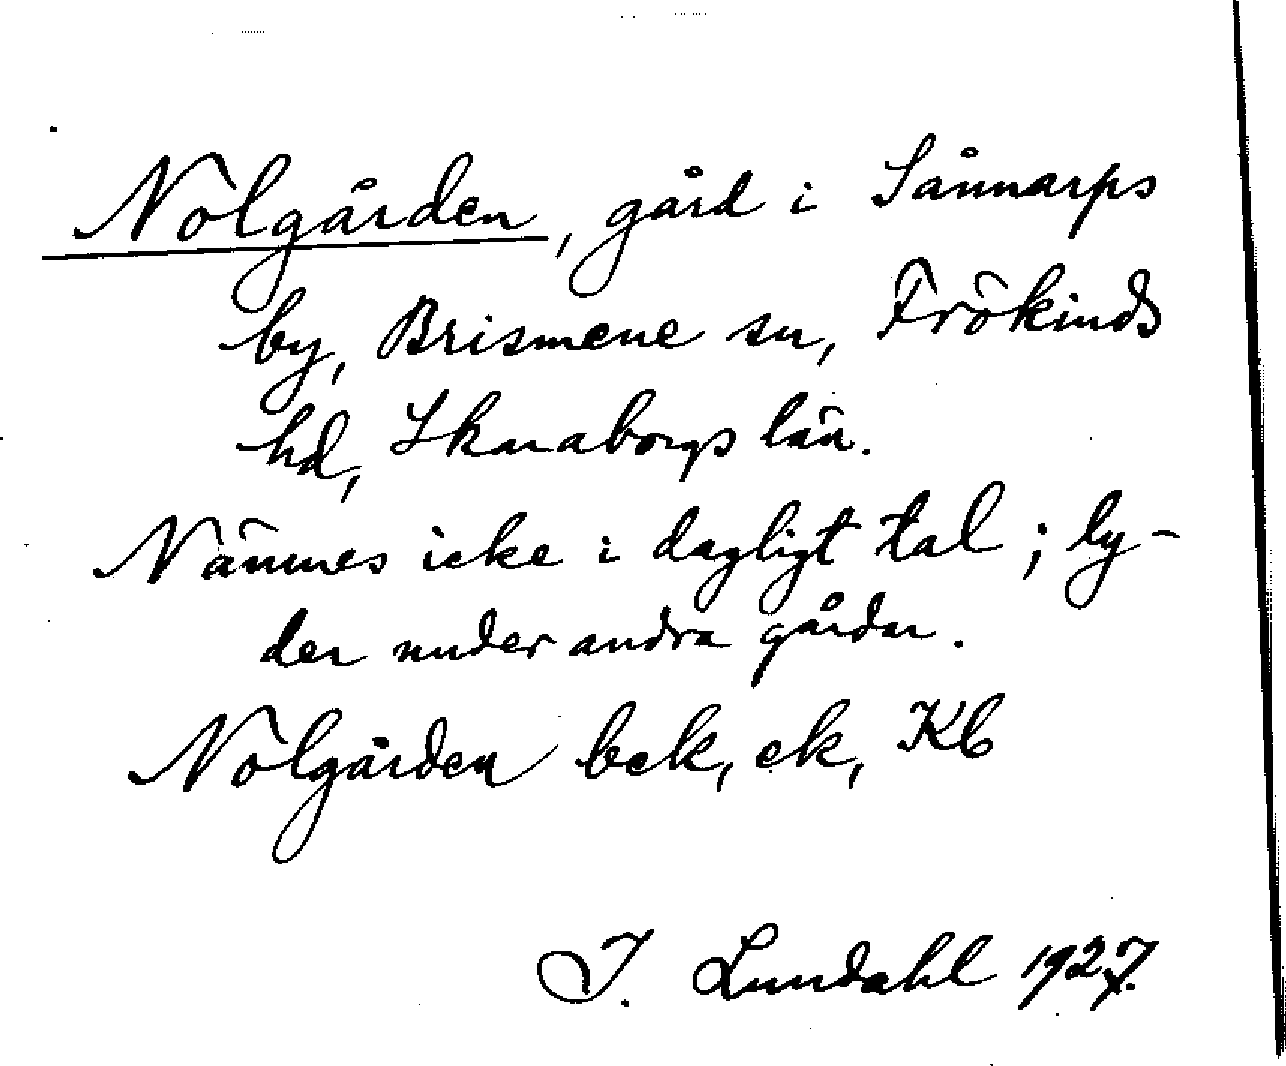 Nolgården, gård i Sånnarps
by, Brismene sn, Frökinds
hd, Skaraborgs län.
Nämnes icke i dagligt tal; ly-
der under andra gårdar.
Nolgården bek, ek, Kb
I. Lundahl 1927.